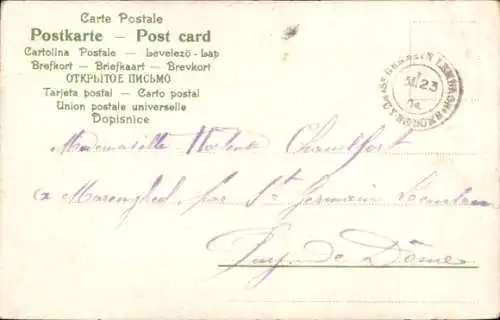 Carte Postale
Postkarte – Post card
Cartolina Postale – Levelező-Lap
Brefkort – Briefkaart – Brevkort
ОТКРЫТОЕ ПИСЬМО
Tarjeta postal – Carto postal
Union postale universelle
Dopisnice
23
Mademoiselle
a Marenghed, par St Germain Lembron
Puy-de-Dôme